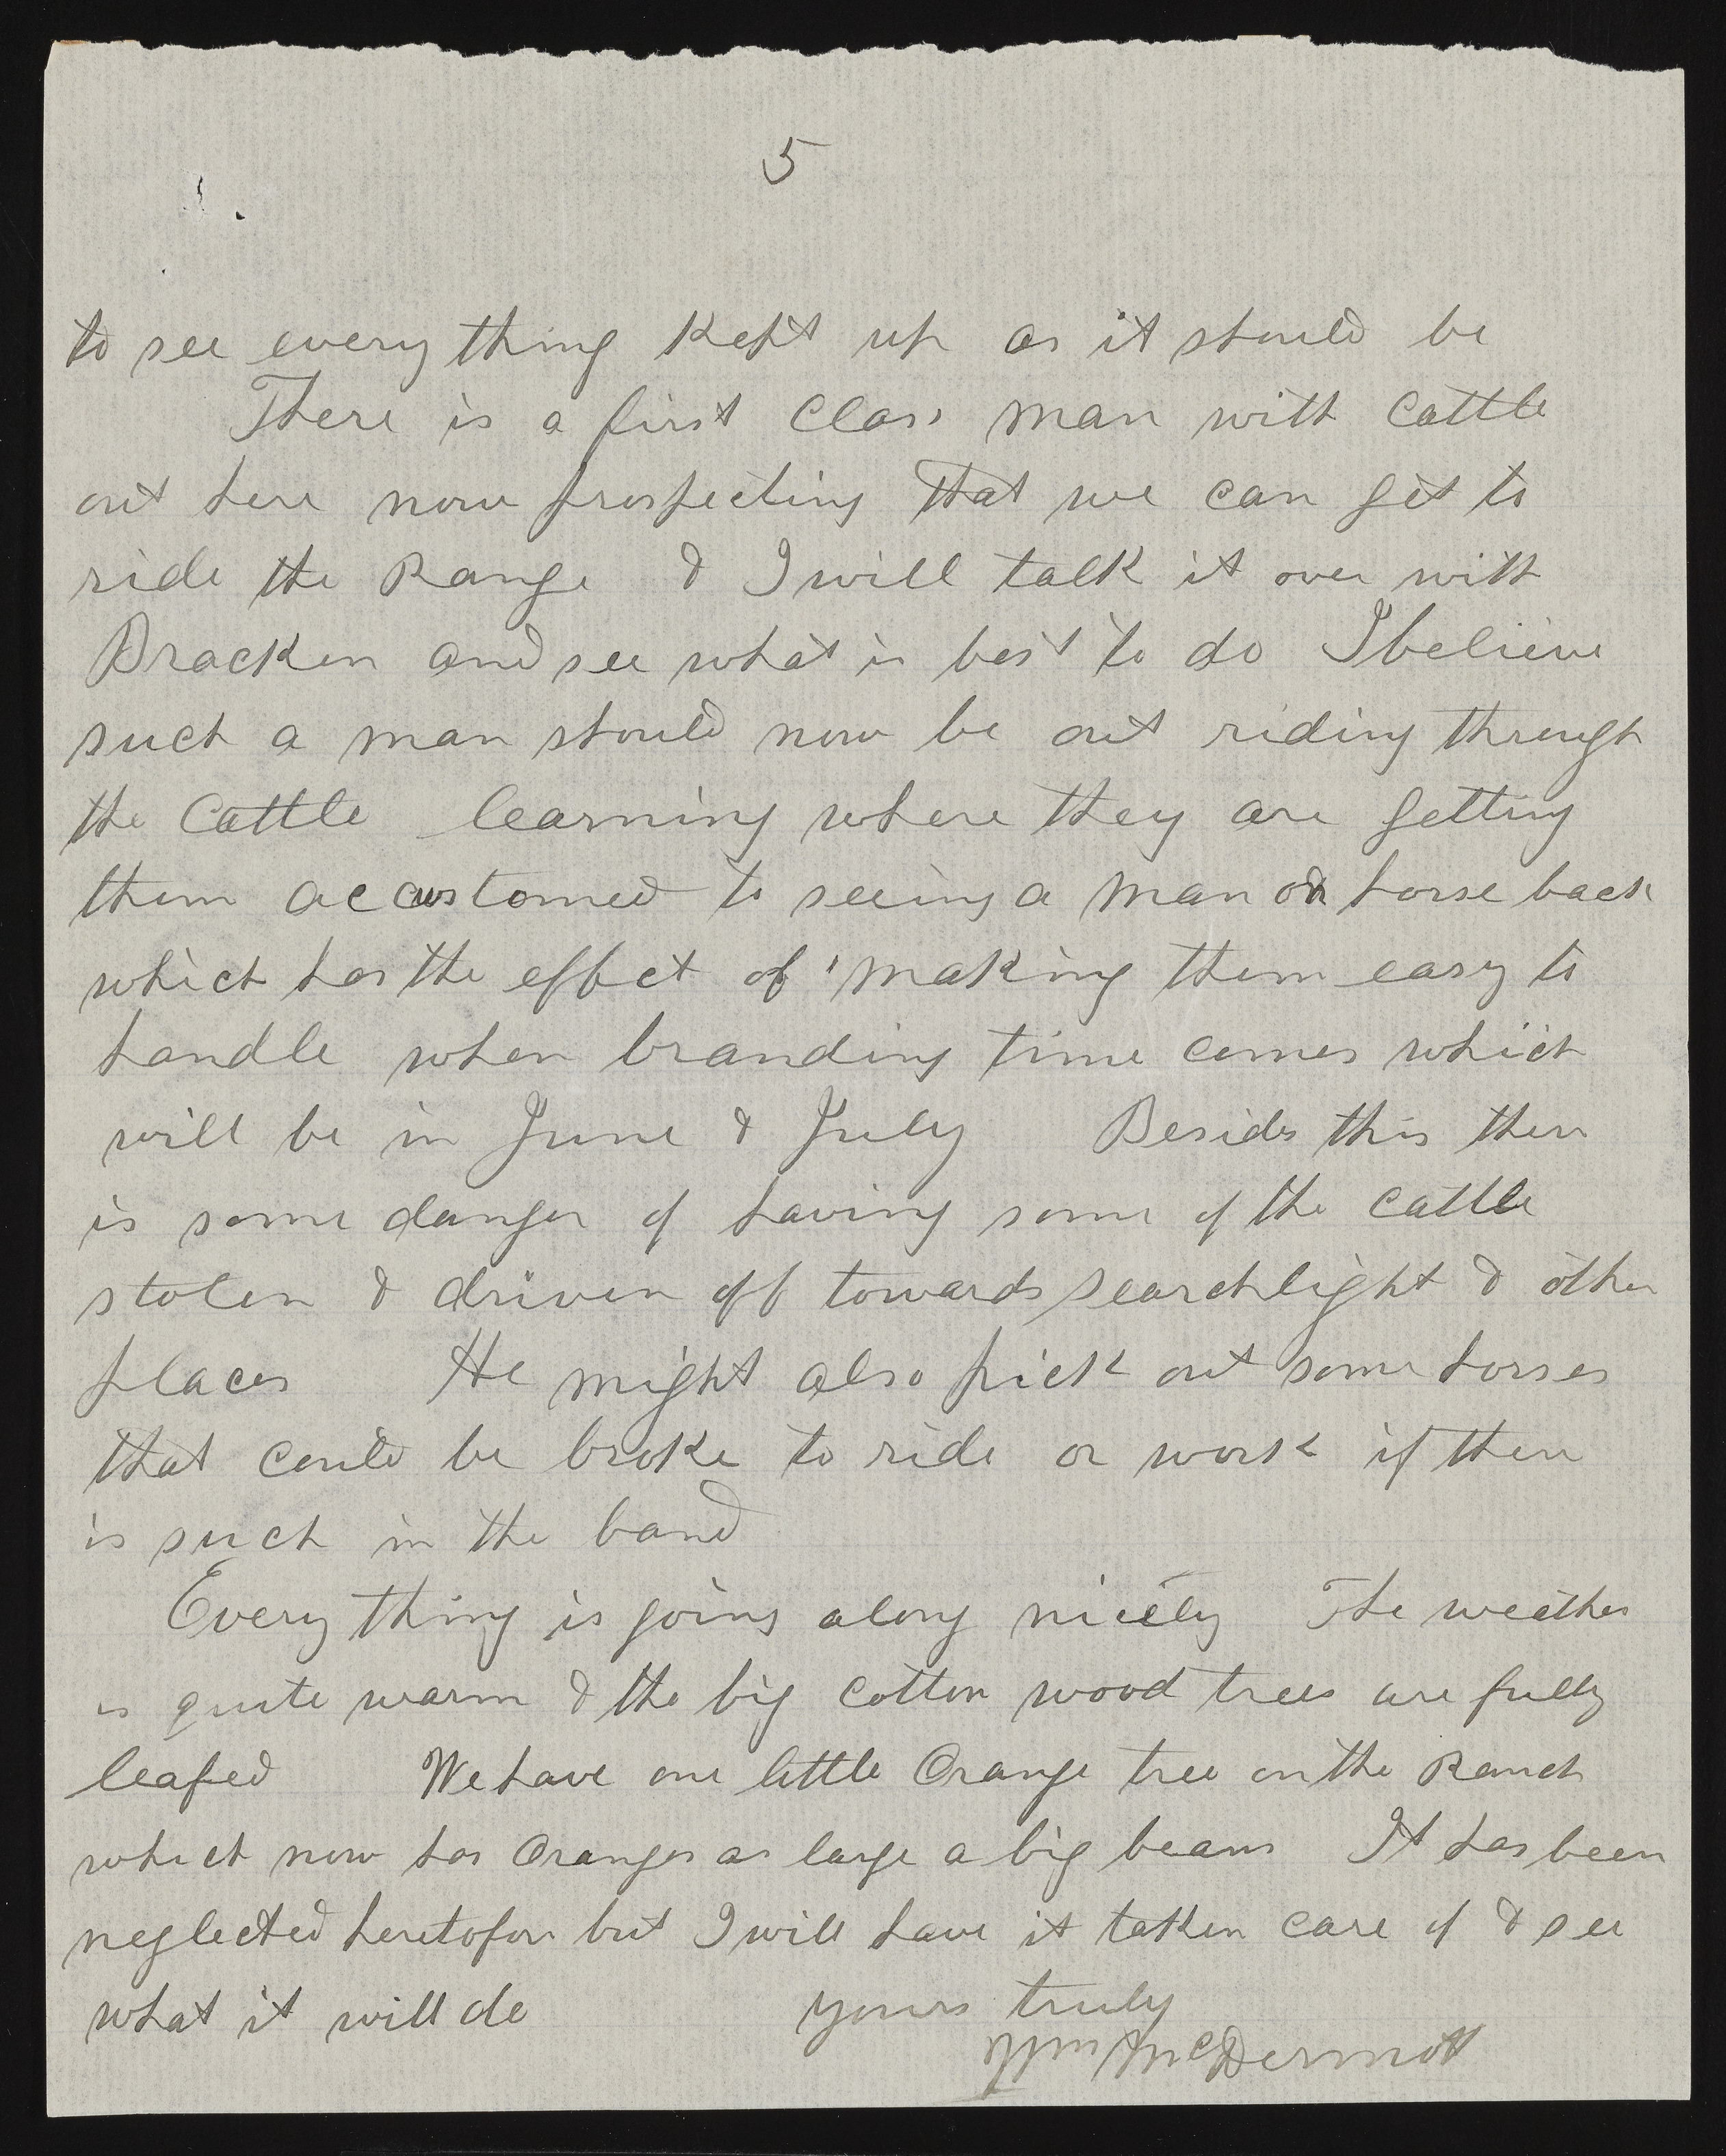 5
to see every thing Kept up as it should be
There is a first Class man with Cattle
out here now prospecting that we can get to
ride the Range & I will talk it over with
Bracken and see what is best to do I believe
such a man should now be out riding through
the Cattle learning where they are getting
them accustomed to seeing a man on horse back
which has the effect of making them easy to
handle when branding time comes which
will be in June & July Besides this there
is some danger of having some of the cattle
stolen & driven off towards Searchlight & other
places He might also pick out some horses
that could be broke to ride or work if there
is such in the band
Every thing is going along nicely The weather
is quite warm & the big cotton wood trees are fully
leafed We have one little Orange tree on the Ranch
which now has Oranges as large a big beans It has been
neglected heretofore but I will have it taken care of & see
what it will do yours truly
Wm McDermott